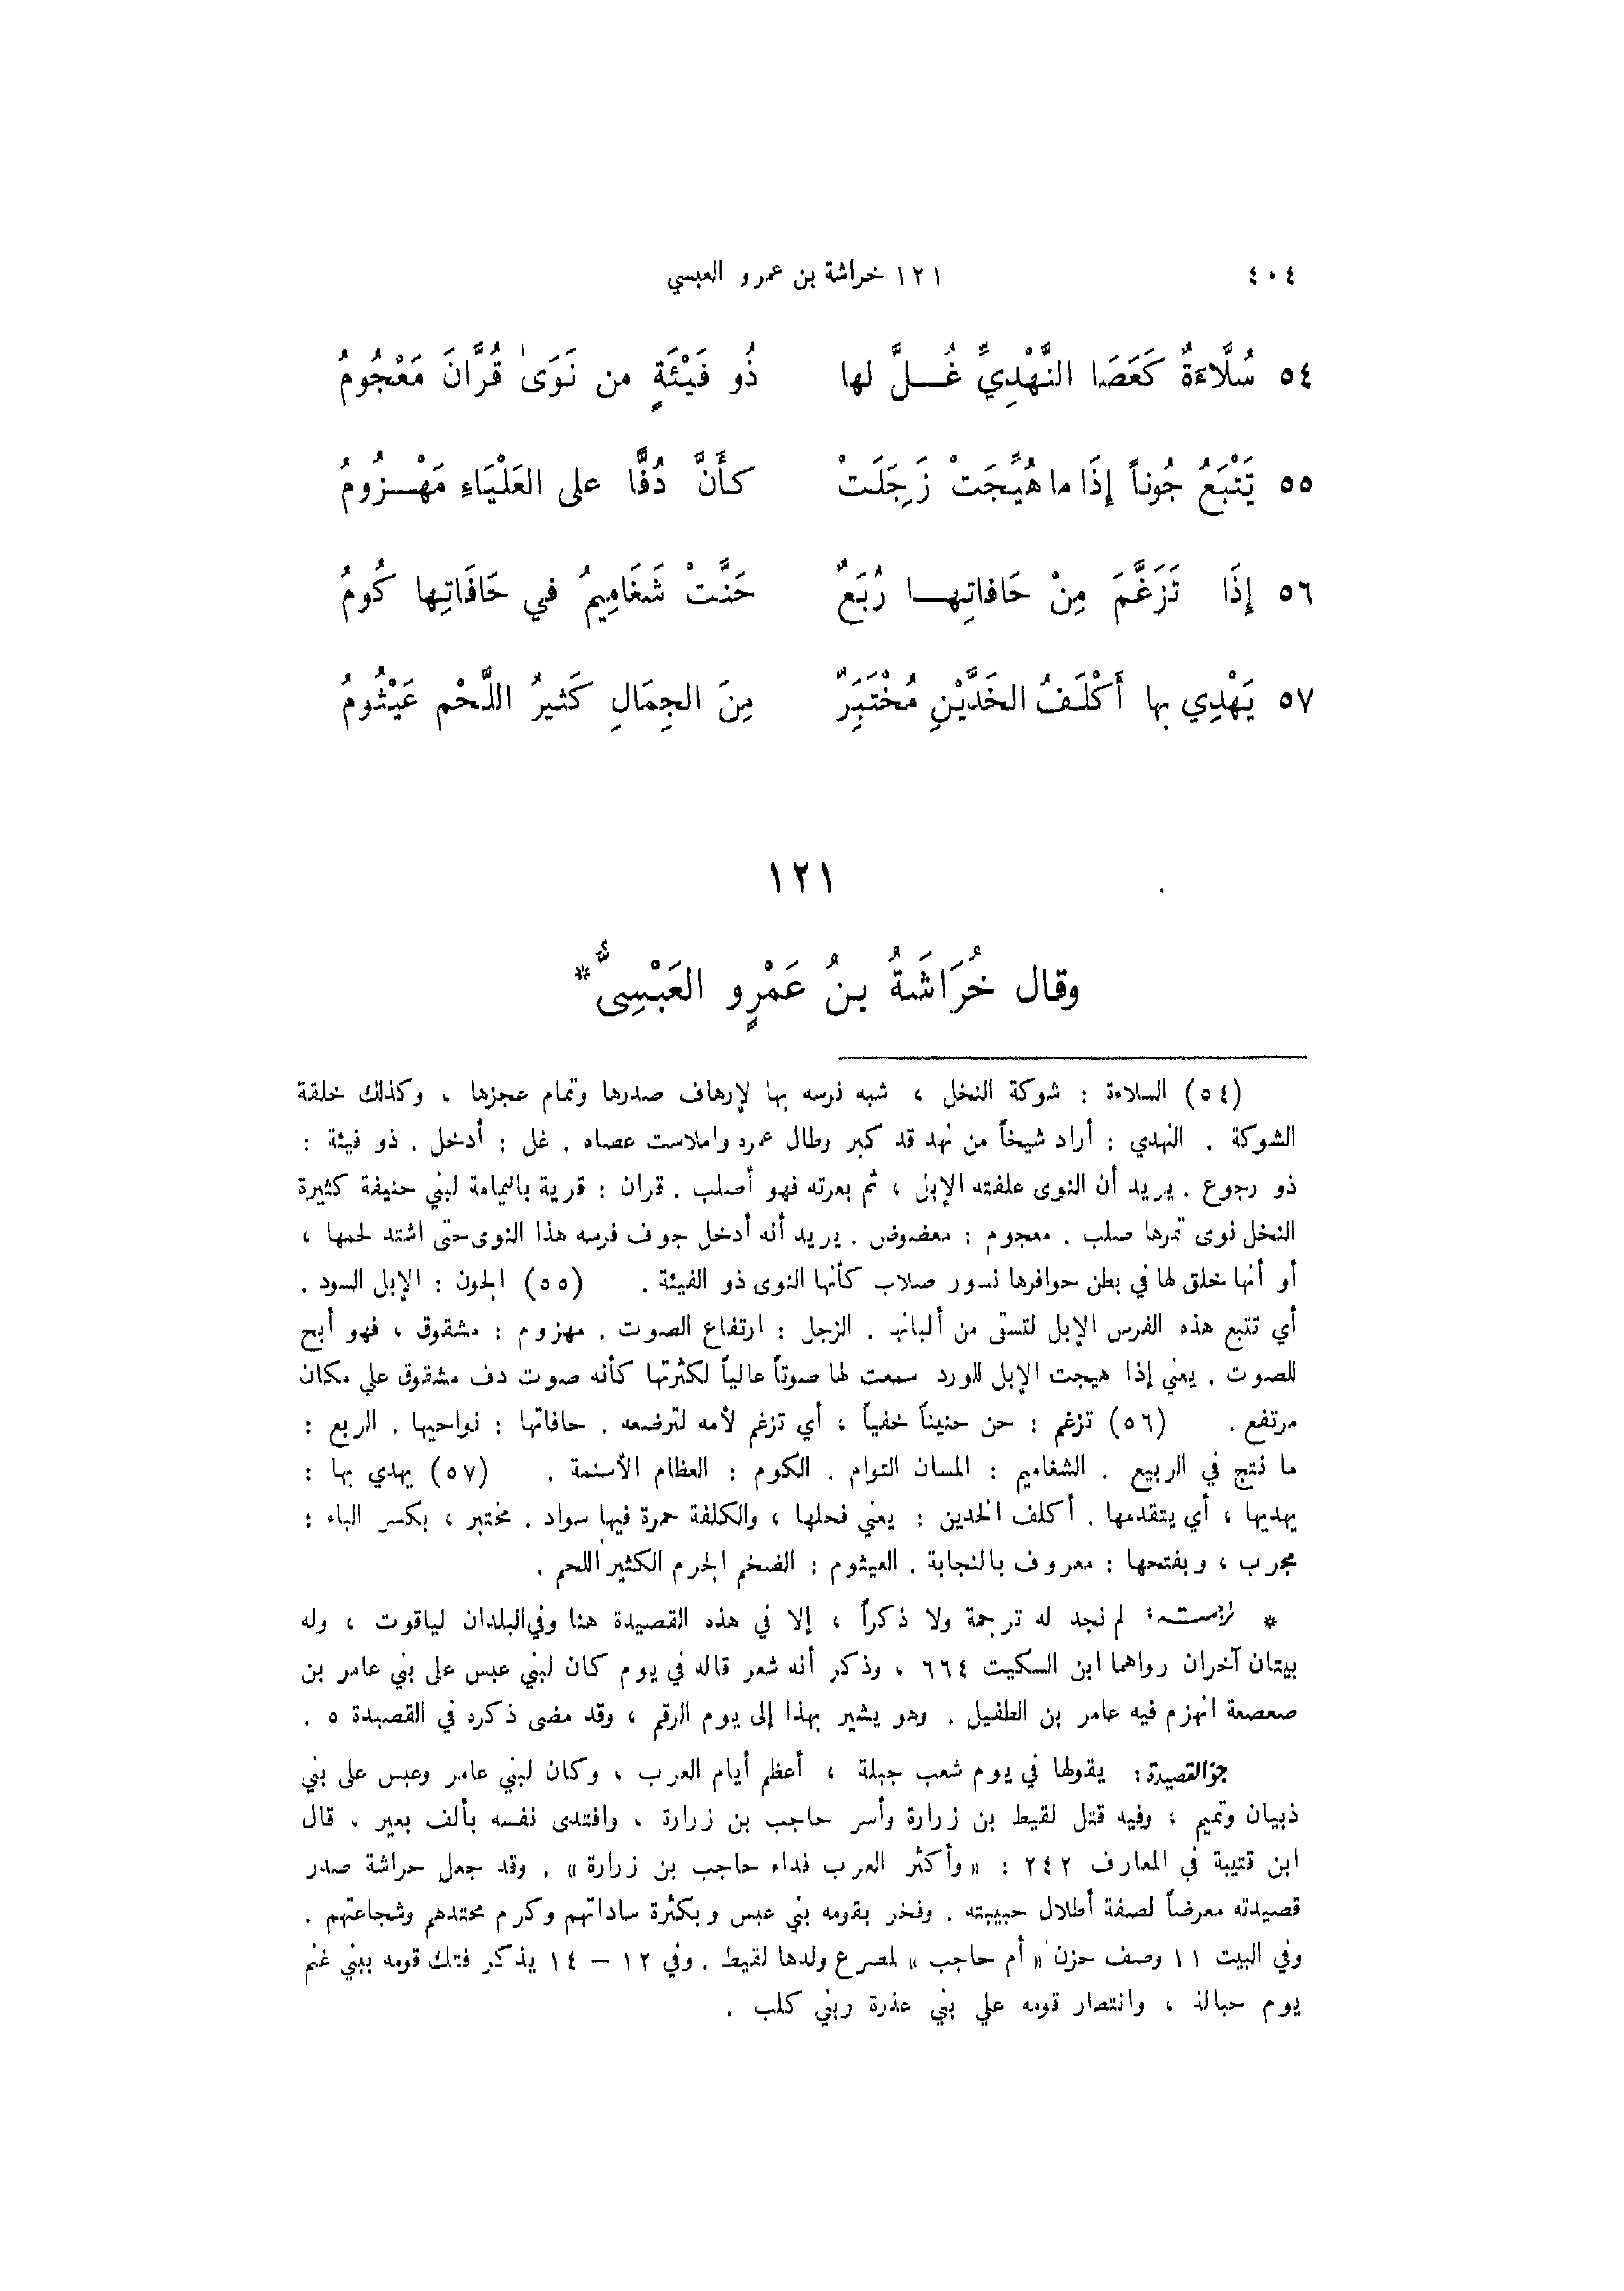 ٤٠٤ ١٢١ خراشة بن عمرو العبسي
٥٤ سُلَّاءَةٌ كَعَصَا النَّهْدِيِّ غُــلَّ لها ذُو فَيْئَةٍ من نَوَىٰ قُرَّانَ مَعْجُومُ
٥٥ يَتْبَعُ جُوناً إِذَا ما هُيِّجَتْ زَجِلَتْ كأَنَّ دُفًّا على العَلْيَاءِ مَهْــزُومُ
٥٦ إِذَا تَزَغَّمَ مِنْ حَافاتِهــا رُبَعٌ حَنَّتْ شَغَامِيمُ في حَافَاتِها كُومُ
٥٧ يَهْدِي بها أَكْلَفُ الخَدَّيْنِ مُخْتَبَرٌ مِنَ الجِمَالِ كَثيرُ اللَّحْم عَيْثُومُ
١٢١
وقال خُرَاشَةُ بنُ عَمْرٍو العَبْسِىُّ*
(٥٤) السلاءة : شوكة النخل ، شبه فرسه بها لإرهاف صدرها وتمام عجزها ، وكذلك خلقة
الشوكة . النهدي : أراد شيخاً من نهد قد كبر وطال عمره واملاست عصاه . غل : أدخل . ذو فيئة :
ذو رجوع . يريد أن النوى علفته الإبل ، ثم بعرته فهو أصلب . قران : قرية باليمامة لبني حنيفة كثيرة
النخل نوى تمرها صلب . معجوم : معضوض . يريد أنه أدخل جوف فرسه هذا النوى حتى اشتد لحمها ،
أو أنها خلق لها في بطن حوافرها نسور صلاب كأنها النوى ذو الفيئة . (٥٥) الجون : الإبل السود .
أي تتبع هذه الفرس الإبل لتسقى من ألبانها . الزجل : ارتفاع الصوت . مهزوم : مشقوق ، فهو أبح
للصوت . يعني إذا هيجت الإبل للورد سمعت لها صوتاً عالياً لكثرتها كأنه صوت دف مشقوق علي مكان
مرتفع . (٥٦) تزغم : حن حنيناً خفياً ، أي تزغم لأمه لترضعه . حافاتها : نواحيها . الربع :
ما نتج في الربيع . الشغاميم : المسان التوام . الكوم : العظام الأسنمة . (٥٧) يهدي بها :
يهديها ، أي يتقدمها . أكلف الخدين : يعني فحلها ، والكلفة حمرة فيها سواد . مختبر ، بكسر الباء :
مجرب ، وبفتحها : معروف بالنجابة . العيثوم : الضخم الجرم الكثير اللحم .
* ترجمته: لم نجد له ترجمة ولا ذكراً ، إلا في هذه القصيدة هنا وفي البلدان لياقوت ، وله
بيتان آخران رواهما ابن السكيت ٦٦٤ ، وذكر أنه شعر قاله في يوم كان لبني عبس على بني عامر بن
صعصعة انهزم فيه عامر بن الطفيل . وهو يشير بهذا إلى يوم الرقم ، وقد مضى ذكره في القصيدة ٥ .
جو القصيدة: يقولها في يوم شعب جبلة ، أعظم أيام العرب ، وكان لبني عامر وعبس على بني
ذبيان وتميم ؛ وفيه قتل لقيط بن زرارة وأسر حاجب بن زرارة ، وافتدى نفسه بألف بعير . قال
ابن قتيبة في المعارف ٢٤٢ : « وأكثر العرب فداء حاجب بن زرارة » . وقد جعل حراشة صدر
قصيدته معرضاً لصفة أطلال حبيبته . وفخر بقومه بني عبس وبكثرة ساداتهم وكرم محتدهم وشجاعتهم .
وفي البيت ١١ وصف حزن « أم حاجب » لمصرع ولدها لقيط . وفي ١٢ – ١٤ يذكر فتك قومه ببني غنم
يوم حبالة ، وانتصار قومه علي بني عذرة وبني كلب .